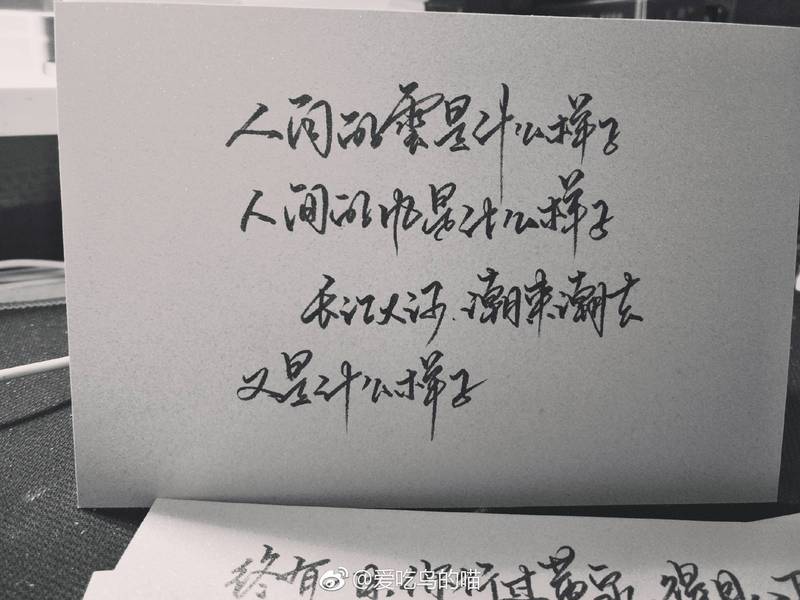 人间的雲是什么样子
人间的也是什么样子
长江大河.潮来潮去
又是什么样子
终有
@爱吃鸟的喵